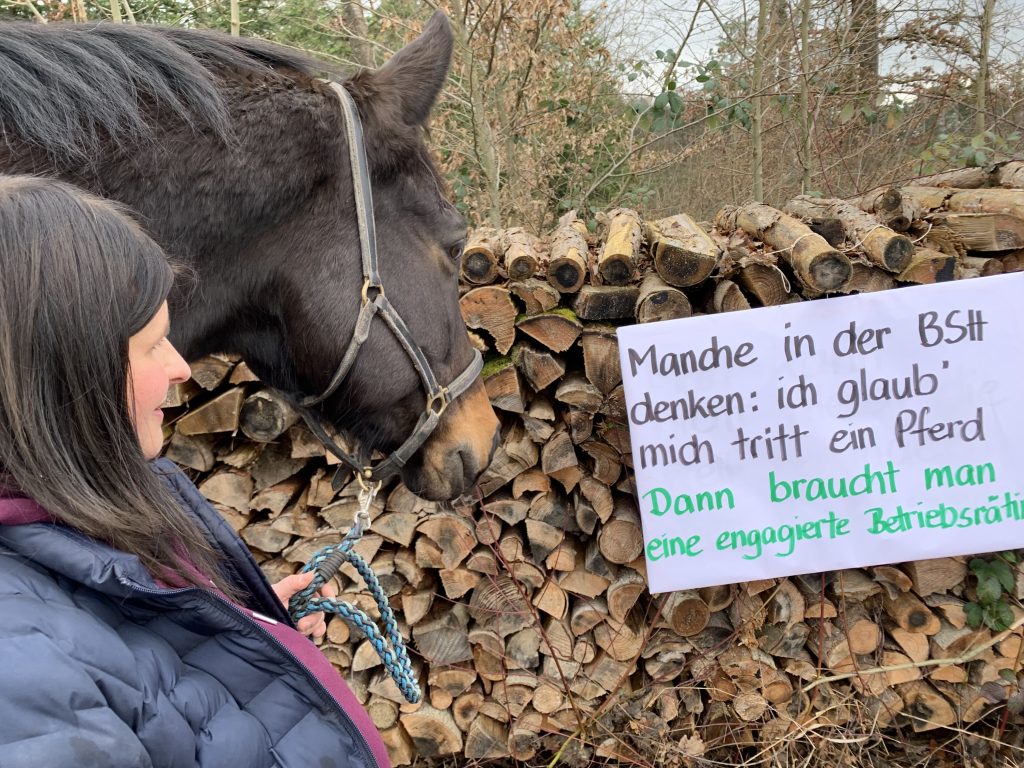 Manche in der BSH
denken: ich glaub'
mich tritt ein Pferd
Dann braucht man
eine engagierte Betriebsrätin